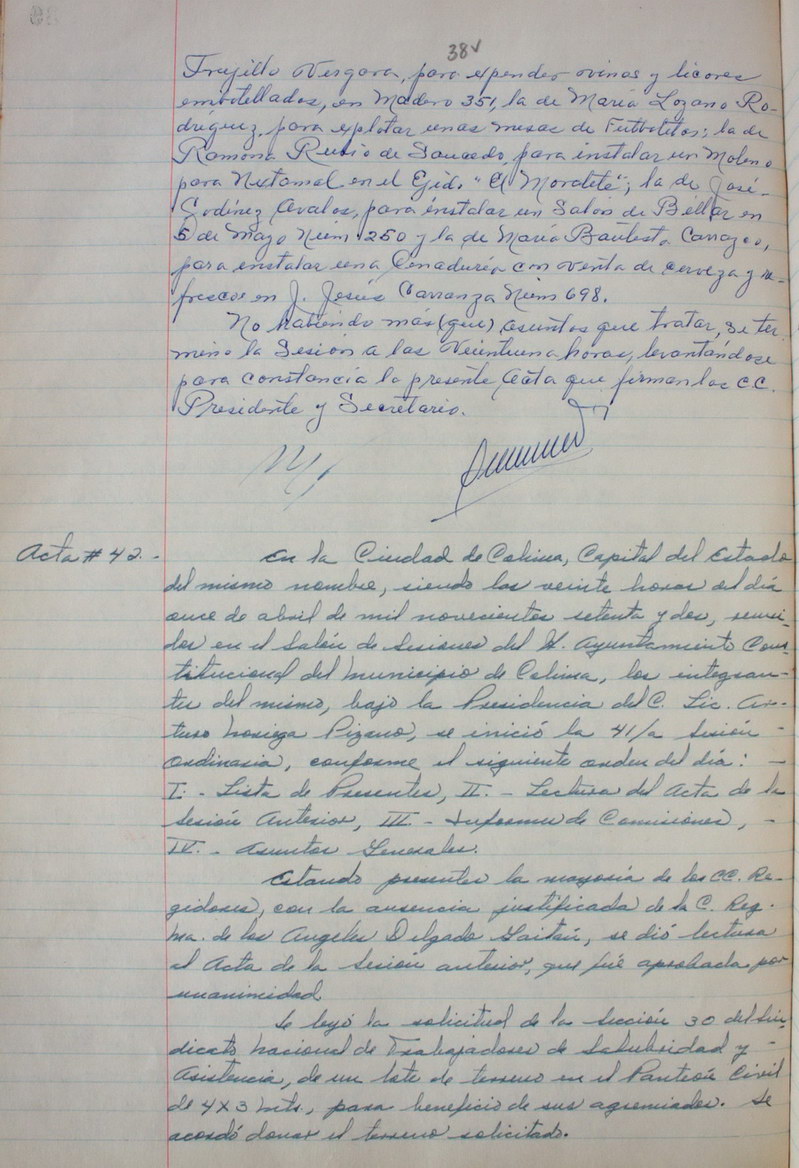 38v
Trujillo Vergara, para expender vinos y licores
embotellados, en Madero 351, la de María Lozano Ro-
dríguez, para explotar unas mesas de Futbolitos; la de
Ramona Rubio de Saucedo, para instalar un Molino
para Nixtamal en el Ejido "El Moralete"; la de José
Godínez Avalos, para instalar un Salón de Billar en
5 de Mayo Núm 250 y la de María Bautista Carrazco,
para instalar una Cenaduría con venta de cerveza y re-
frescos en J. Jesús Carranza Núm 698.
No habiendo más (que) asuntos que tratar, se ter-
minó la Sesión a las Veintuena horas, levantándose
para constancia la presente Acta que firman los C.C.
Presidente y Secretario.
Acta # 42.-
En la Ciudad de Colima, Capital del Estado
del mismo nombre, siendo las veinte horas del día
once de abril de mil novecientos setenta y dos, reuni-
dos en el Salón de Sesiones del H. Ayuntamiento Cons-
titucional del Municipio de Colima, los integran-
tes del mismo, bajo la Presidencia del C. Lic. Ar-
turo Noriega Pizano, se inició la 41/a Sesión -
Ordinaria, conforme el siguiente orden del día: -
I.- Lista de Presentes, II.- Lectura del Acta de la
Sesión Anterior, III.- Informes de Comisiones, -
IV.- Asuntos Generales.
Estando presentes la mayoría de los CC. Re-
gidores, con la ausencia justificada de la C. Reg.
Ma. de los Angeles Delgado Gaitán, se dió lectura
al Acta de la Sesión anterior, que fué aprobada por
unanimidad.
Se leyó la solicitud de la Sección 30 del Sin-
dicato Nacional de Trabajadores de Salubridad y -
Asistencia, de un lote de terreno en el Panteón Civil
de 4X3 mts., para beneficio de sus agremiados. Se
acordó donar el terreno solicitado.